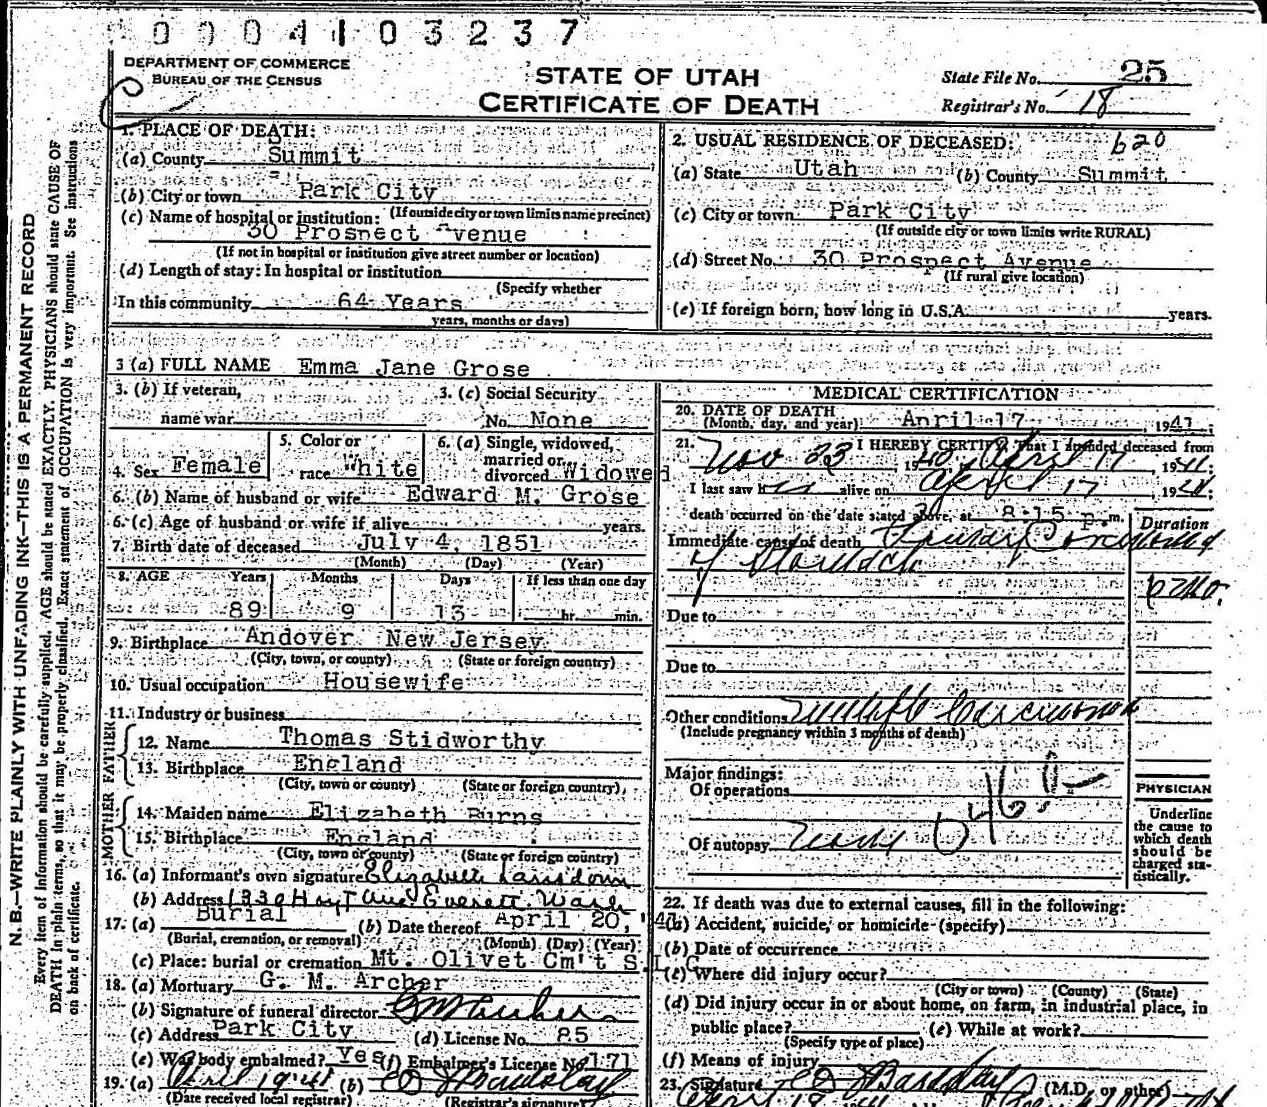 0004103237
DEPARTMENT OF COMMERCE
BUREAU OF THE CENSUS
STATE OF UTAH
CERTIFICATE OF DEATH
State File No. 25
Registrar's No. 18
N. B.—WRITE PLAINLY WITH UNFADING INK—THIS IS A PERMANENT RECORD
Every item of information should be carefully supplied. AGE should be stated EXACTLY. PHYSICIANS should state CAUSE OF
DEATH in plain terms, so that it may be properly classified. Exact statement of OCCUPATION is very important. See instructions
on back of certificate.
1. PLACE OF DEATH:
(a) County Summit
(b) City or town Park City
(If outside city or town limits name precinct)
(c) Name of hospital or institution:
30 Prospect Avenue
(If not in hospital or institution give street number or location)
(d) Length of stay: In hospital or institution
(Specify whether
In this community 64 Years
years, months or days)
2. USUAL RESIDENCE OF DECEASED: 620
(a) State Utah (b) County Summit
(c) City or town Park City
(If outside city or town limits write RURAL)
(d) Street No. 30 Prospect Avenue
(If rural give location)
(e) If foreign born, how long in U.S.A. years.
3 (a) FULL NAME Emma Jane Grose
3. (b) If veteran,
name war
3. (c) Social Security
No. None
4. Sex Female
5. Color or
race White
6. (a) Single, widowed,
married or
divorced Widowed
6. (b) Name of husband or wife Edward M. Grose
6. (c) Age of husband or wife if alive years.
7. Birth date of deceased July 4, 1851
(Month) (Day) (Year)
8. AGE Years Months Days If less than one day
89 9 13 hr. min.
9. Birthplace Andover New Jersey
(City, town, or county) (State or foreign country)
10. Usual occupation Housewife
11. Industry or business
FATHER
12. Name Thomas Stidworthy
13. Birthplace England
(City, town or county) (State or foreign country)
MOTHER
14. Maiden name Elizabeth Burns
15. Birthplace England
(City, town or county) (State or foreign country)
16. (a) Informant's own signature Elizabeth Lansdown
(b) Address 1330 Hoyt Ave Everett. Wash
17. (a) Burial (b) Date thereof April 20, '41
(Burial, cremation, or removal) (Month) (Day) (Year)
(c) Place: burial or cremation Mt. Olivet Cm't S.L.C
18. (a) Mortuary G. M. Archer
(b) Signature of funeral director
(c) Address Park City (d) License No. 85
(e) Was body embalmed? Yes (f) Embalmer's License No. 171
19. (a) April 19 41 (b)
(Date received local registrar) (Registrar's signature)
MEDICAL CERTIFICATION
20. DATE OF DEATH
(Month, day, and year) April 17 1941
21. I HEREBY CERTIFY, That I attended deceased from
Nov 23 1940, April 17, 1941;
I last saw her alive on April 17 1941;
death occurred on the date stated above, at 8:15 p.m.
Duration
Immediate cause of death
of Stomach
6 mo.
Due to
Due to
Other conditions Multiple Carcinoma
(Include pregnancy within 3 months of death)
Major findings:
Of operations
Of autopsy
PHYSICIAN
Underline
the cause to
which death
should be
charged sta-
tistically.
22. If death was due to external causes, fill in the following:
(a) Accident, suicide, or homicide (specify)
(b) Date of occurrence
(c) Where did injury occur?
(City or town) (County) (State)
(d) Did injury occur in or about home, on farm, in industrial place, in
public place? (e) While at work?
(Specify type of place)
(f) Means of injury
23. Signature (M.D. or other)